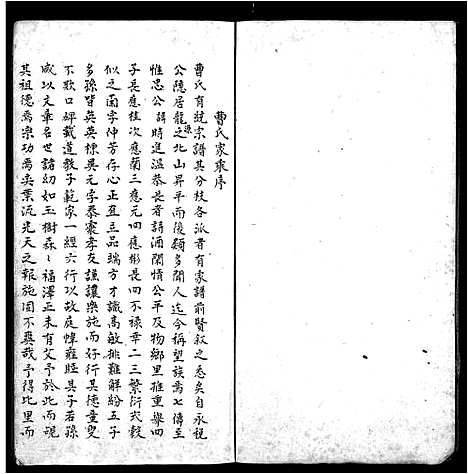 曹氏家乘序
曹氏有統宗譜其分枝各派者有家譜前賢敘之悉矣自永税
公隱居龍源之北山昇平而後頗多聞人迄今稱望族焉七傳至
惟思公詩時庭溫恭長者詩酒閑情公平及物鄉里推重舉四
子長應桂次應蘭三應元四應彬長四不禄幸二三繁衍大毅
似之面字仲芳存心正直立品端方才識高敏排難解紛五子
多孫皆英英標異元字泰寰孝友謙讓樂施而好行其德童叟
不欺口碑載道教子範家一經六行以故庭幃雍睦其子若孫
咸以文章名世諸幼如玉樹森〻福澤正未有艾予於此而覘
其祖德焉宗功焉奕葉流光天之報施固不爽哉予得比里而